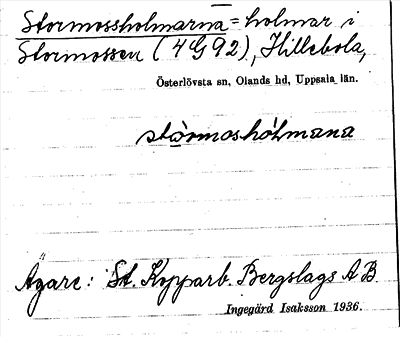 Stormossholmarna = holmar i
Stormossen (4 G 92), Hillebola,
Österlövsta sn, Olands hd, Uppsala län.
stòrmoshólmana
Ägare: St. Kopparb. Bergslags A B
Ingegärd Isaksson 1936.